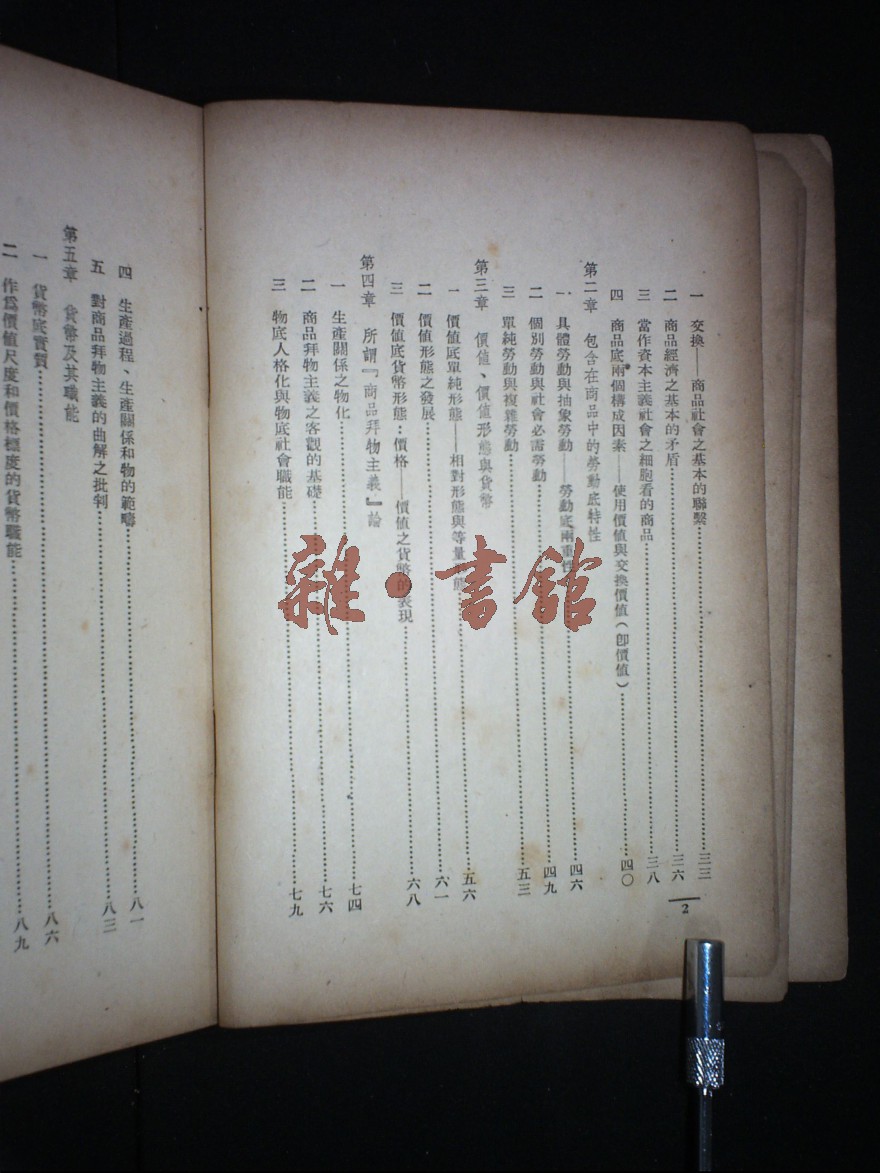 一 交換——商品社會之基本的聯繫…………三三
二 商品經濟之基本的矛盾…………三六
三 當作資本主義社會之細胞看的商品…………三八
四 商品底兩個構成因素——使用價值與交換價值（卽價值）…………四〇
第二章 包含在商品中的勞動底特性
一 具體勞動與抽象勞動——勞動底兩重性…………四六
二 個別勞動與社會必需勞動…………四九
三 單純勞動與複雜勞動…………五三
第三章 價值、價值形態與貨幣
一 價值底單純形態——相對形態與等量形態…………五六
二 價值形態之發展…………六一
三 價值底貨幣形態：價格——價值之貨幣的表現…………六八
第四章 所謂『商品拜物主義』論
一 生產關係之物化…………七四
二 商品拜物主義之客觀的基礎…………七六
三 物底人格化與物底社會職能…………七九
2
四 生產過程、生產關係和物的範疇…………八一
五 對商品拜物主義的曲解之批判…………八三
第五章 貨幣及其職能
一 貨幣底實質…………八六
二 作爲價值尺度和價格標度的貨幣職能…………八九
雜·書館